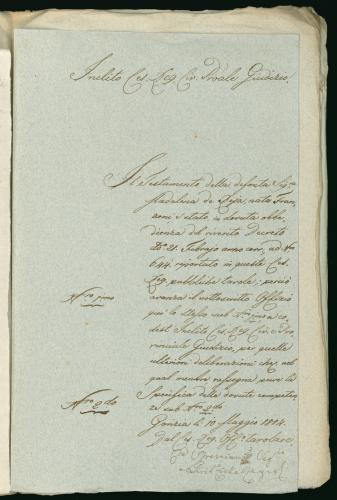 Inclito Ces. Reg. Civ. Provale Giudizio!
Il Testamento della defonta Sig.ra
Madalena de
zoni è stato, in dovuta obbe-
dienza del riverito Decreto
dto 21. Febrajo anno corr. ad No
644. riportato in queste Ces.
Reg. pubbliche tavole; perciò
avanza il sottoscritto Offizio
qui lo stesso sub Nro 1mo a co-
dest' Inclito Ces. Reg. Civ. e Pro-
vinciale Giudizio, per quelle
ulteriori deliberazioni che, nel
qual mentre rassegna pure la
Specifica delle dovute competen-
ze sub Nro 2do
Nro 1mo
Nro 2do
Gorizia li 10 Maggio 1814.
Dal Ces. Reg. Off.o Tavolare